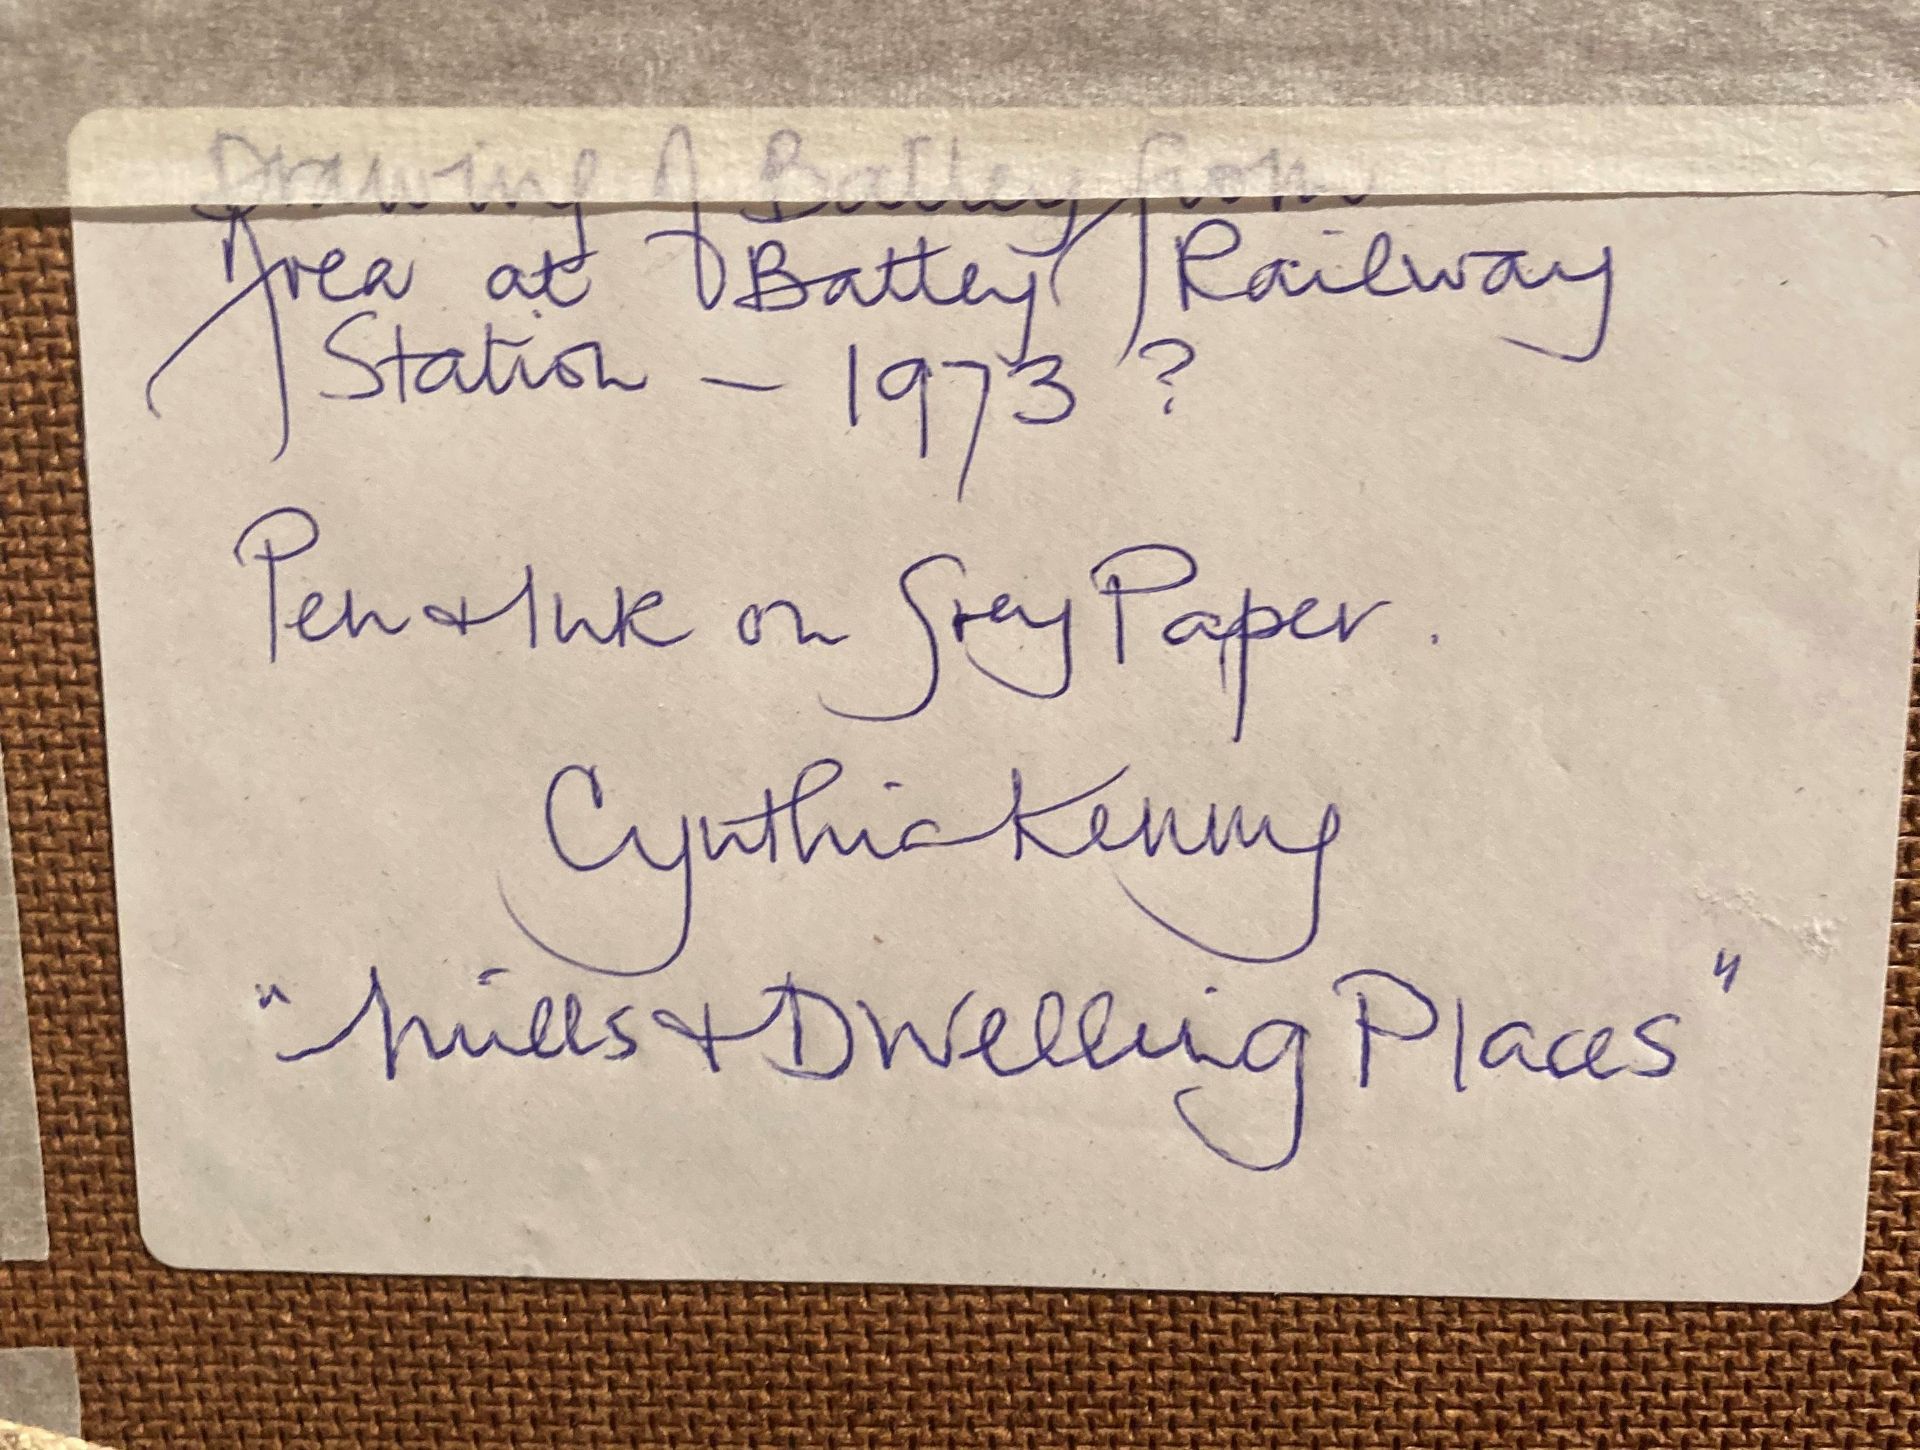 Drawing of Batley from
Area at Batley Railway
Station - 1973 ?
Pen & Ink on Grey Paper.
Cynthia Kenny
"Mills & Dwelling Places"